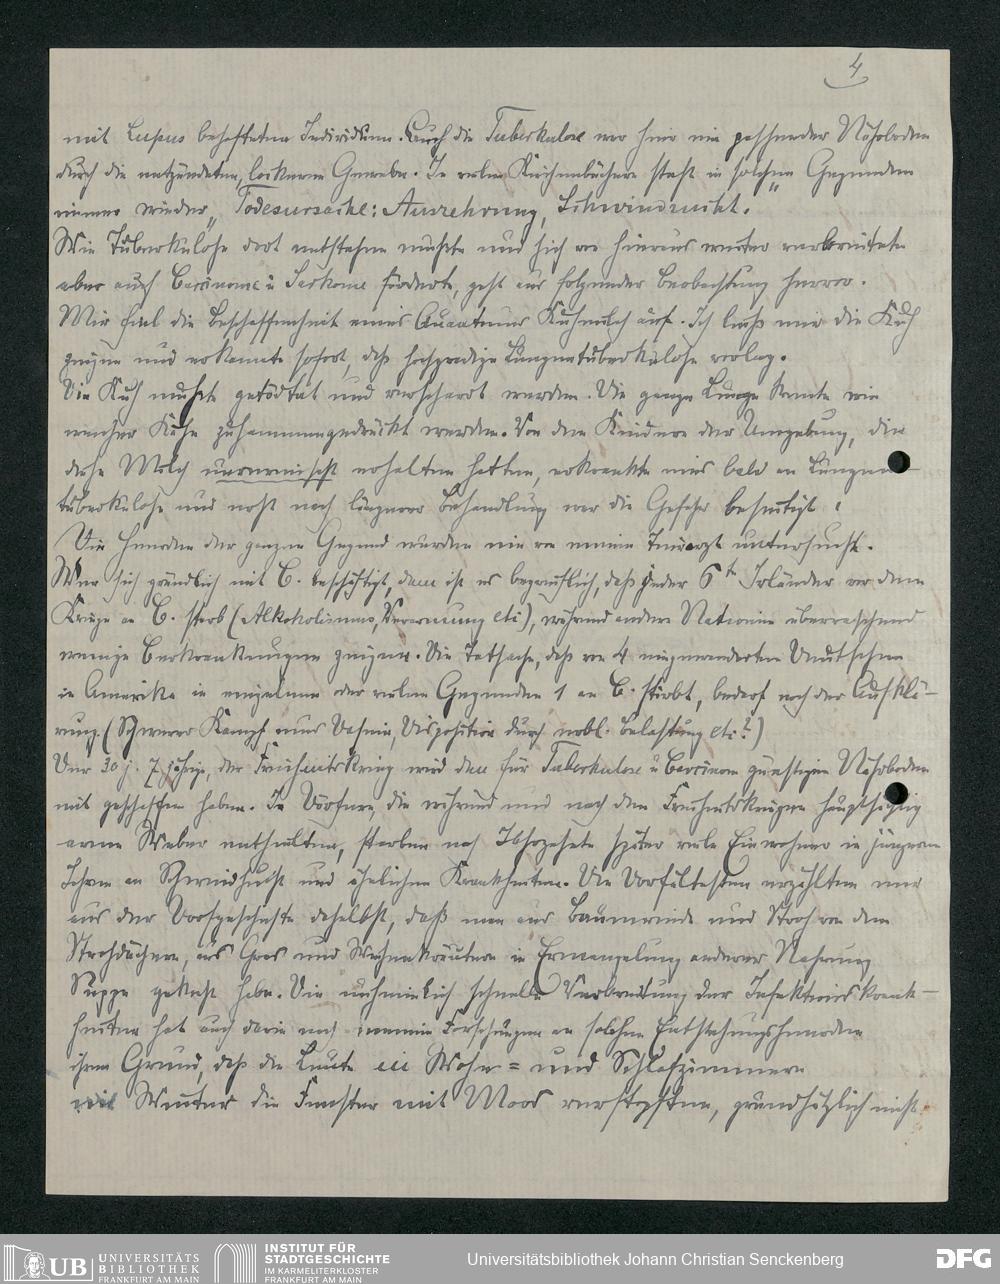 4
mit Lupus behafteten Individuum. Auch die Tuberkulose war hier ein passender Nährboden
durch die entzündeten, lockeren Gewebe. In vielen Kirchenbüchern steht in solchen Gegenden
immer wieder „Todesursache: Auszehrung, Schwindsucht.
Wie Tuberkulose dort entstehen musste und sich von hieraus weiter verbreitete
aber auch Carcinome u Sarkome förderte, geht aus folgender Beobachtung hervor.
Mir fiel die Beschaffenheit eines Quantums Kuhmilch auf. Ich liess mir die Kuh
zeigen und erkannte sofort, dass hochgradige Lungentuberkulose vorlag.
Die Kuh musste getödtet und verscharrt werden. Die ganze Lunge konnte wie
weicher Käse zusammengedrückt werden. Von den Kindern der Umgebung, die
diese Milch unvermischt erhalten hatten, erkrankte eines bald an Lungen-
tuberkulose und erst nach längerer Behandlung war die Gefahr beseitigt.
Die Herden der ganzen Gegend wurden nie von einem Tierarzt untersucht.
Wer sich gründlich mit C. beschäftigt, dem ist es begreiflich, dass jeder 6te Irländer vor dem
Kriege an C. starb (Alkoholismus, Verarmung etc), während andere Nationen überraschend
wenige Erkrankungen zeigen. Die Tatsache, dass von 4 eingewanderten Deutschen
in Amerika in einzelnen oder vielen Gegenden 1 an C. stirbt, bedarf noch der Aufklä-
rung. (Schwerer Kampf ums Dasein, Disposition durch erbl. Belastung etc.?)
Der 30 j. 7 jährige, der Freiheitskrieg wird den für Tuberkulose u Carcinom günstigen Nährboden
mit geschaffen haben. In Dörfern, die während und nach den Freiheitskriegen hauptsächlich
arme Weber enthielten, starben noch Jahrzehnte später viele Einwohner in jüngeren
Jahren an Schwindsucht und ähnlichen Krankheiten. Die Dorfältesten erzählten mir
aus der Dorfgeschichte daselbst, dass man aus Baumrinde und Stroh von den
Strohdächern, aus Gras und Wiesenkräutern in Ermangelung anderer Nahrung
Suppe gekocht habe. Die unheimlich schnelle Verbreitung der Infektionskrank-
heiten hat auch darin nach meinen Forschungen an solchen Entstehungsherden
ihren Grund, dass die Leute in Wohn= und Schlafzimmern
im Winter die Fenster mit Moos verstopften, grundsätzlich nicht
UB UNIVERSITÄTS
BIBLIOTHEK
FRANKFURT AM MAIN
INSTITUT FÜR
STADTGESCHICHTE
IM KARMELITERKLOSTER
FRANKFURT AM MAIN
Universitätsbibliothek Johann Christian Senckenberg
DFG